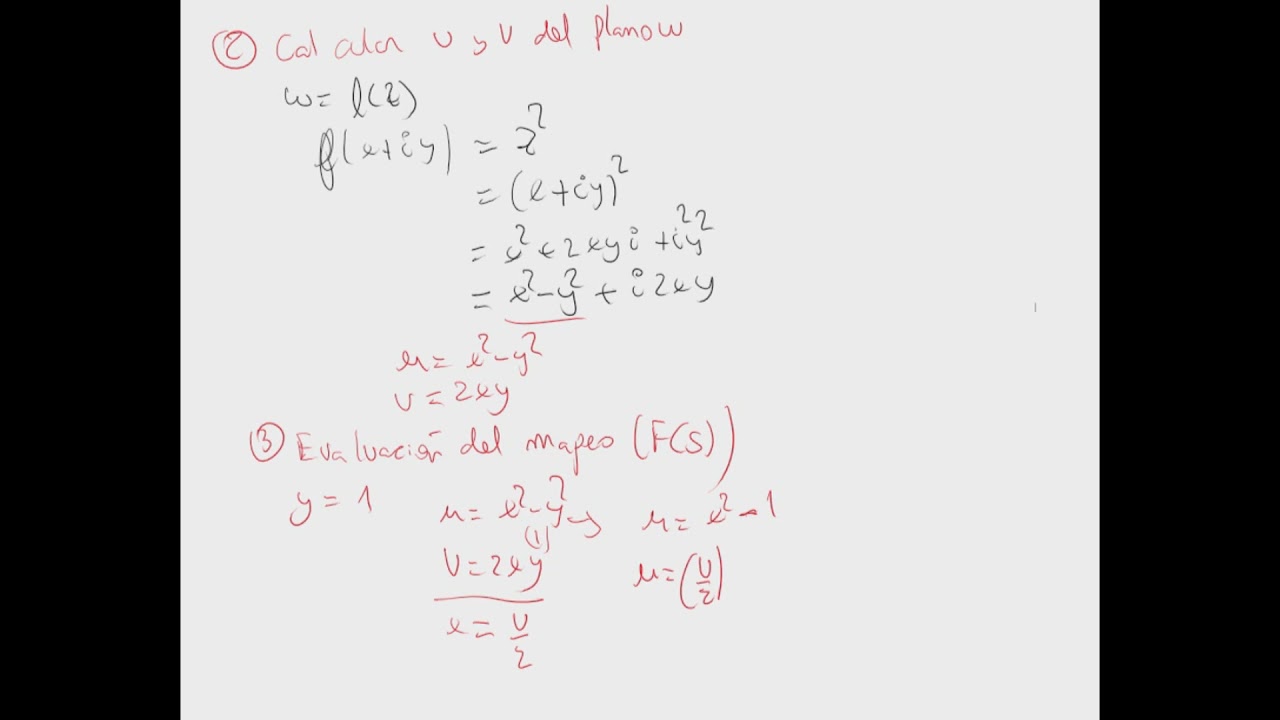 ② Calcular u y v del plano w
w = f(z)
f(x+iy) = z²
= (x+iy)²
= x² + 2xyi + i²y²
= x²-y² + i2xy
u = x²-y²
v = 2xy
③ Evaluación del mapeo (F(S))
y = 1 u = x²-y² → u = x²-1
(1)
v = 2xy u = (v/2)
x = v/2